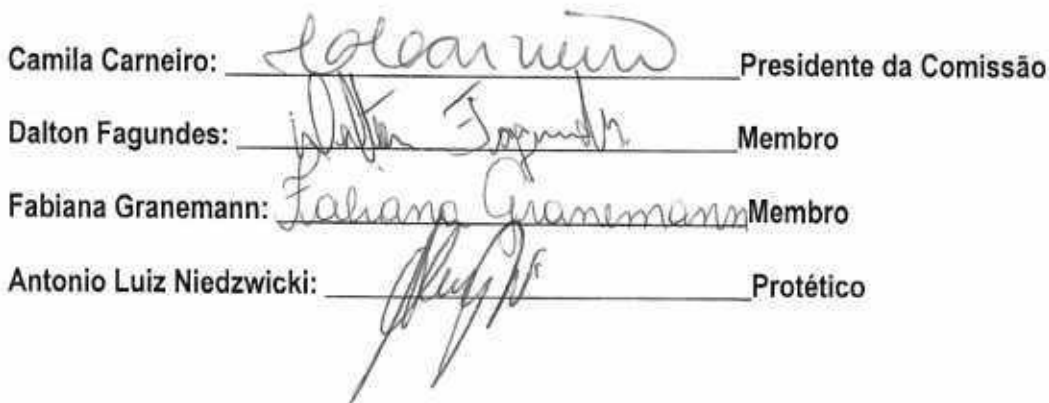 Camila Carneiro: Presidente da Comissão
Dalton Fagundes: Dalton Fagundes Membro
Fabiana Granemann: Fabiana Granemann Membro
Antonio Luiz Niedzwicki: Protético